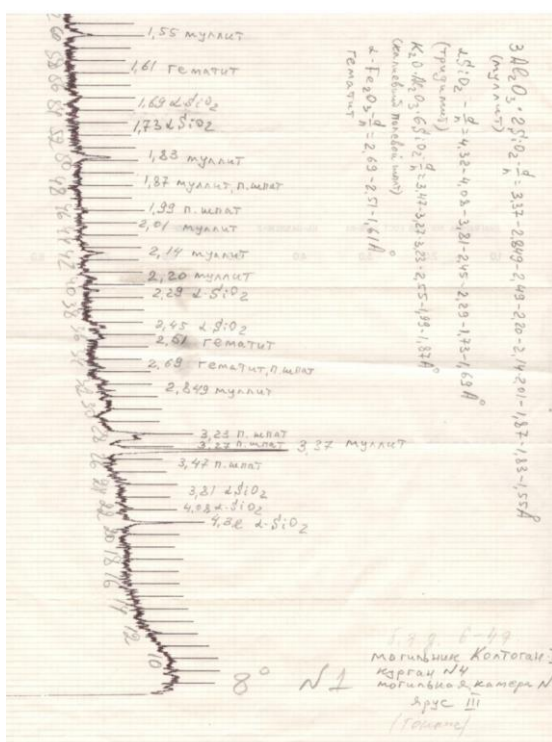 1,55 муллит
1,61 гематит
1,69 α SiO₂
1,73 α SiO₂
1,83 муллит
1,87 муллит, п. шпат
1,99 п. шпат
2,01 муллит
2,14 муллит
2,20 муллит
2,29 α-SiO₂
2,45 α-SiO₂
2,51 гематит
2,69 гематит, п. шпат
2,849 муллит
3,23 п. шпат
3,27 п. шпат 3,37 муллит
3,47 п. шпат
3,81 α SiO₂
4,08 α-SiO₂
4,32 α-SiO₂
60 58 56 54 52 50 48 46 44 42 40 38 36 34 32 30 28 26 24 22 20 18 16 14 12 10
8° N1
3Al₂O₃·2SiO₂ - d/n = 3,37-2,849-2,49-2,20-2,14-2,01-1,87-1,83-1,55Å
(муллит)
αSiO₂ - d/n = 4,32-4,08-3,81-2,45-2,29-1,73-1,69Å
(тридимит)
K₂O·Al₂O₃·6SiO₂ - d/n = 3,47-3,27-3,23-2,55-1,99-1,87Å
(калиевый полевой шпат)
α-Fe₂O₃ - d/n = 2,69-2,51-1,61Å
гематит
могильник Колтоган-
курган N4
могильная камера N
Ярус III